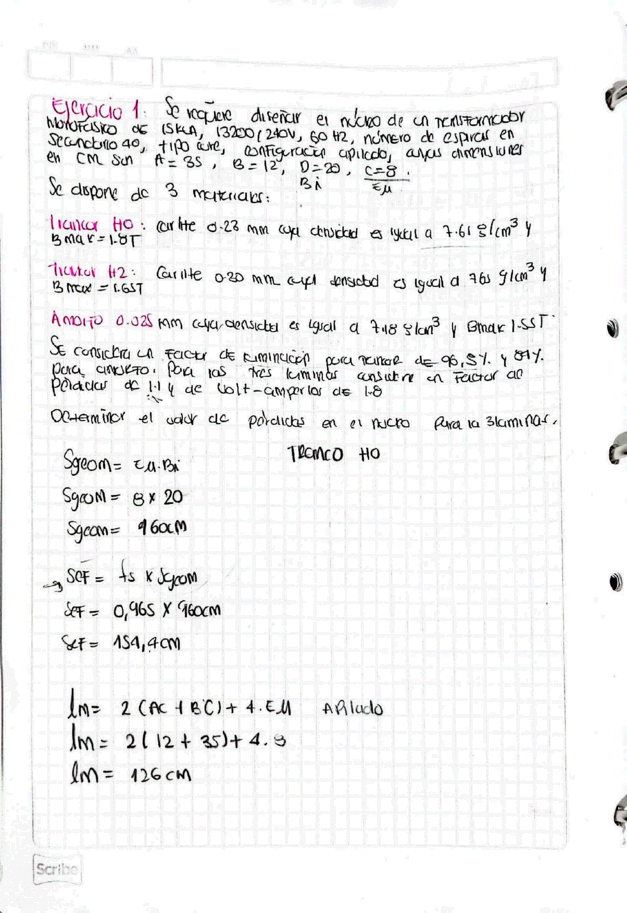 Ejercicio 1. Se requiere diseñar el núcleo de un Transformador
Monofásico de 15kVA, 13200/240V, 60 Hz, número de espiras en
Secundario 40, tipo core, configuración apilado, cuyas dimensiones
en CM son A=35, B=12, D=20, C=8.
Bi EM
Se dispone de 3 materiales:
Trancor H0: Carlite 0.23 mm cuya densidad es igual a 7.61 g/cm³ y
B max = 1.8T
Trancor H2: Carlite 0.30 mm cuya densidad es igual a 765 g/cm³ y
B max = 1.65T
AMORFO 0.025 mm cuya densidad es igual a 7.18 g/cm³ y Bmax 1.55T.
Se considera un Factor de laminación para Trancor de 96,5%. y 87%.
para amorfo. Para las tres laminas considere un Factor de
Pérdidas de 1.1 y de Volt-amperios de 1.8
Determinar el valor de pérdidas en el nucro Para la 3laminas.
TRANCO HO
Sgeom= EM.Bi
SgeoM = 8 x 20
Sgeom= 160cM
SEF = fs x Sgeom
SEF = 0,965 X 160cm
SEF = 154,4cm
lM= 2 (AC + BC) + 4.EM APilado
lM= 2(12 + 35) + 4.8
lM= 126cM
Scribe